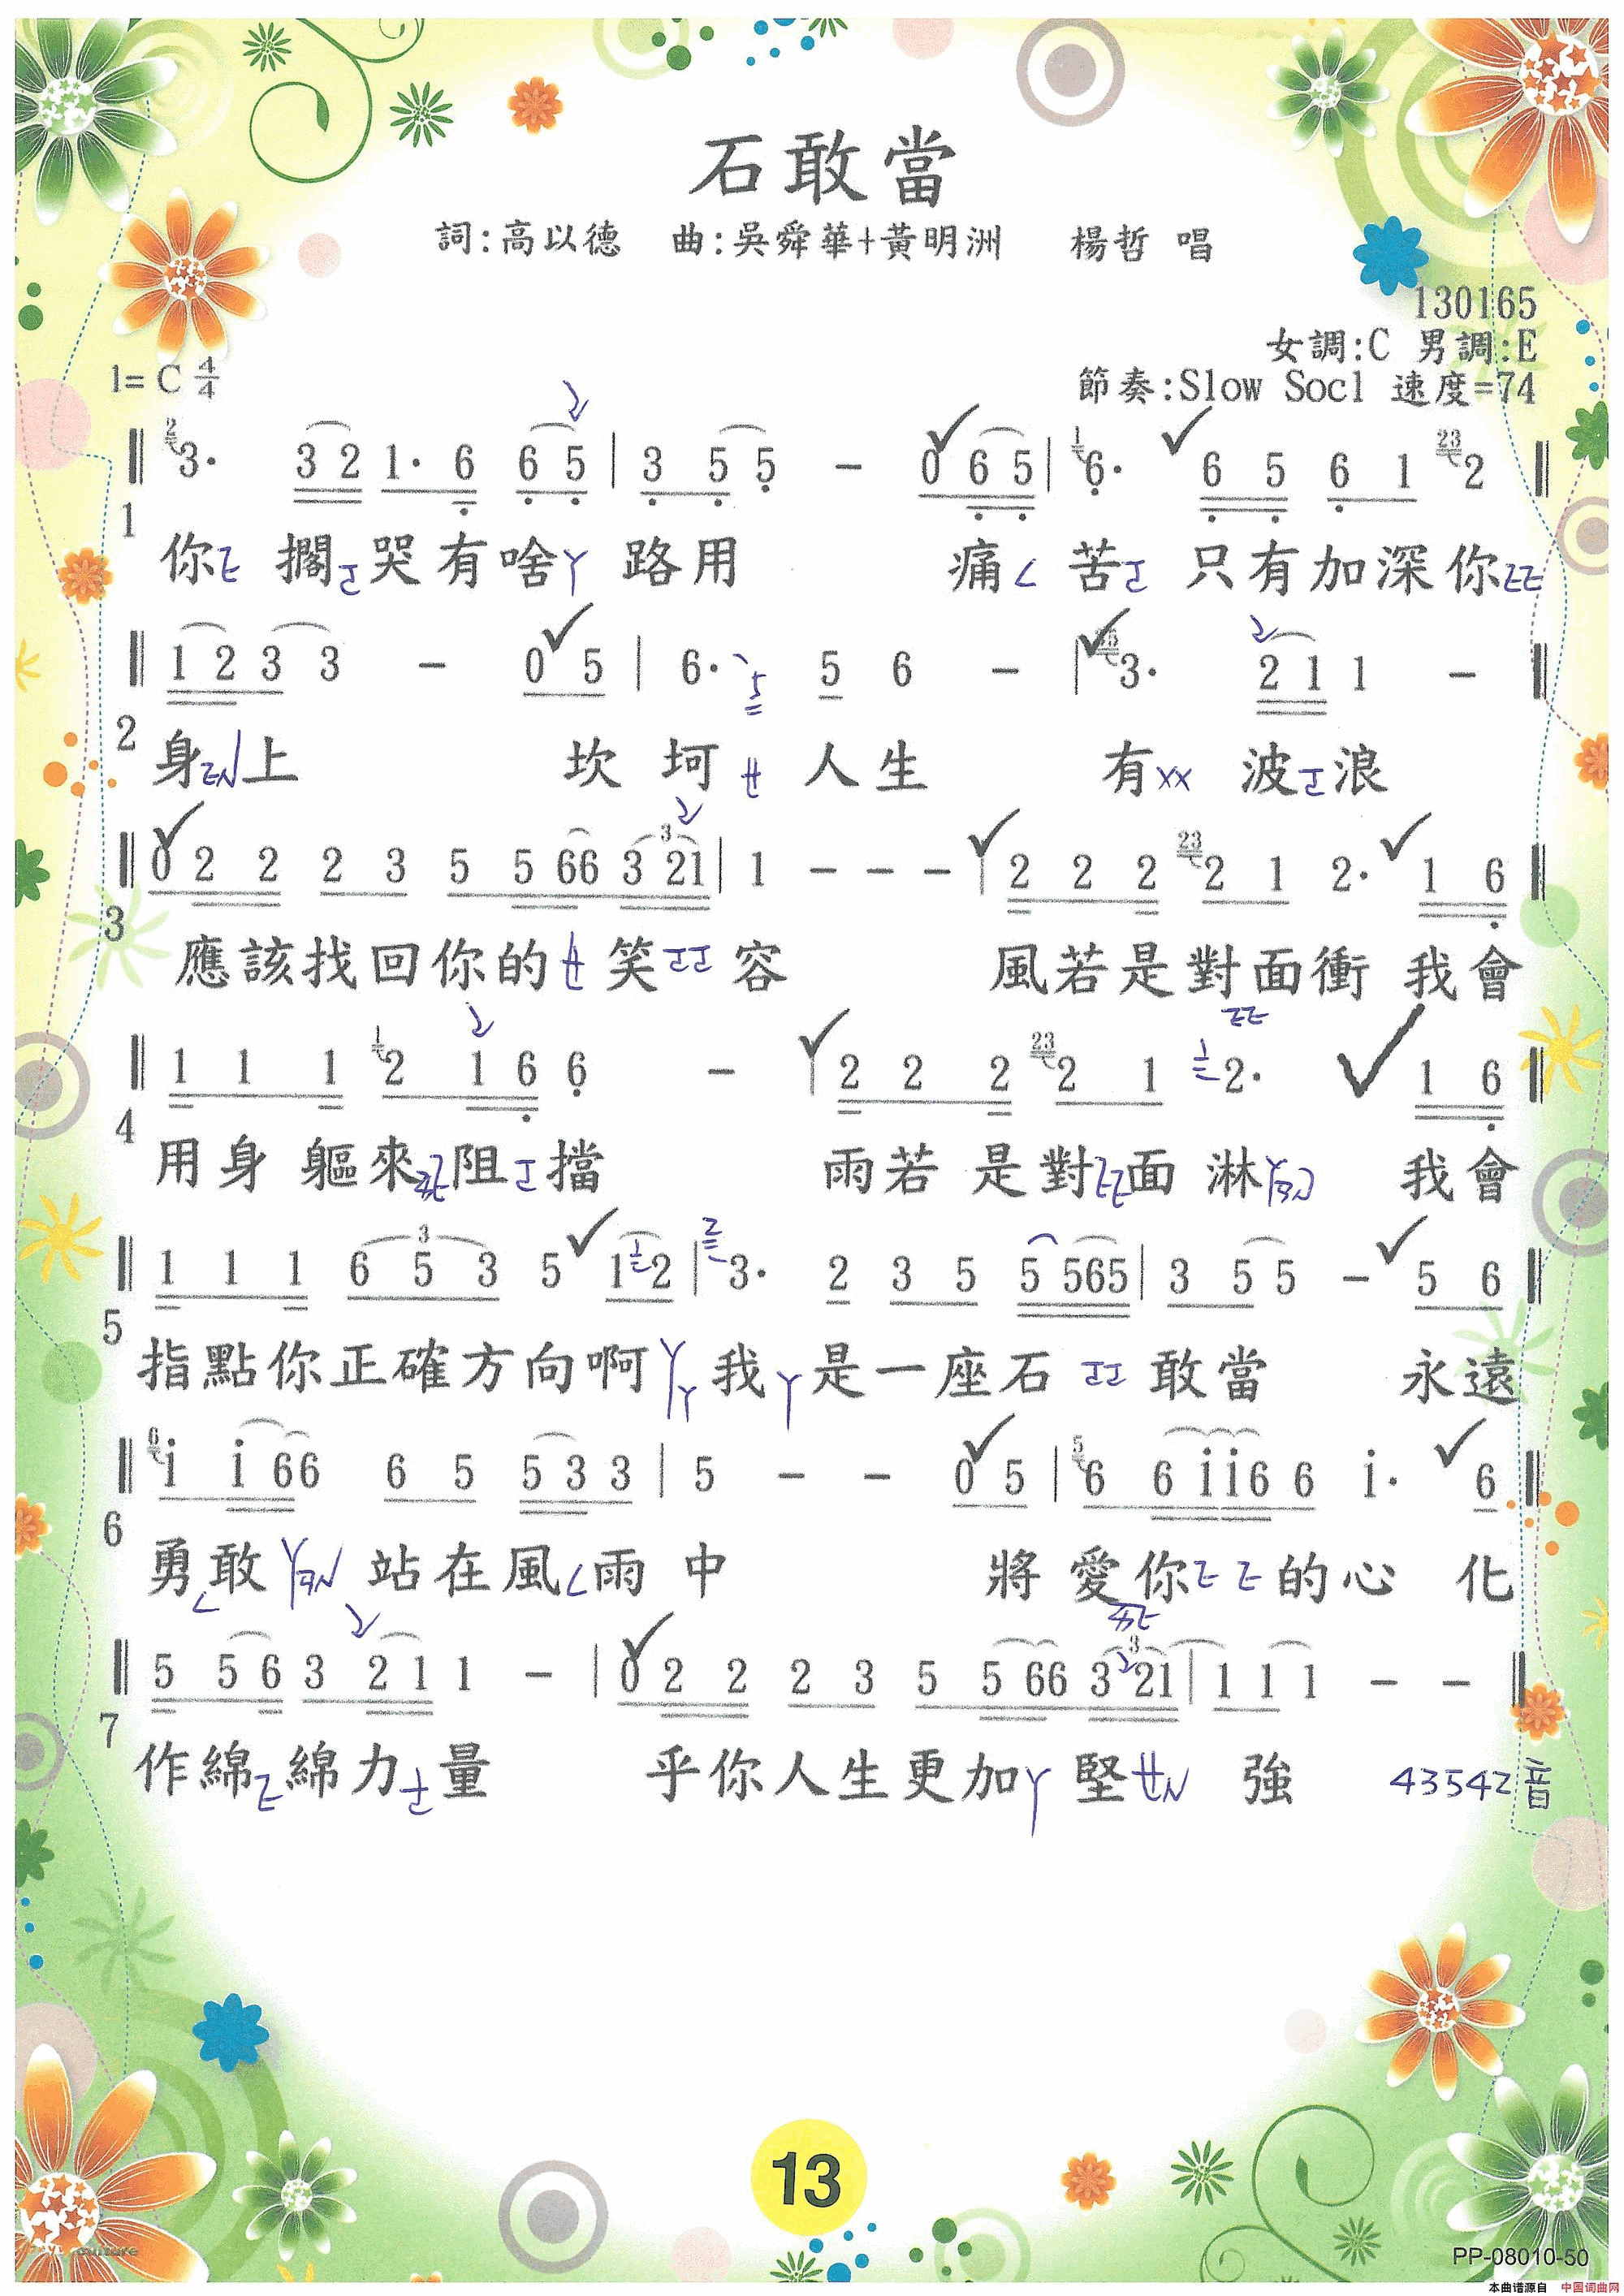 石敢當
詞:高以德 曲:吳舜華+黃明洲 楊哲 唱
130165
女調:C 男調:E
1= C 4/4
節奏:Slow Socl 速度=74
2 3· 3 2 1· 6 6 5 | 3 5 5 － 0 6 5 | 1 6· 6 5 6 1 23 2
1
你ㄜ 擱ㄛ哭有啥ㄚ 路用 痛ㄑ 苦ㄛ 只有加深你ㄜㄜ
1 2 3 3 － 0 5 | 6· 5 5 6 － | 3· 2 1 1 －
2
身 上 坎 坷ㄝ 人生 有xx 波ㄛ浪
0 2 2 2 3 5 5 66 3 21 | 1 － － － | 2 2 2 23 2 1 2· 1 6
3
應該找回你的ㄝ 笑ㄛㄛ 容 風若是對面衝 我會
1 1 1 1 2 1 6 6 － | 2 2 2 23 2 1 1 2· 1 6
4
用身 軀來 阻ㄛ擋 雨若 是對 面 淋 我會
1 1 1 6 5 3 5 1 1 2 | 2 3· 2 3 5 5 565 | 3 5 5 － 5 6
5
指點你正確方向啊ㄚㄚ 我ㄚ是一座石 ㄛㄛ 敢當 永遠
6 i i 66 6 5 5 3 3 | 5 － － 0 5 | 5 6 6 ii6 6 i· 6
6
勇敢 站在風ㄑ雨 中 將 愛你ㄜㄜ的心 化
5 5 6 3 2 1 1 － | 0 2 2 2 3 5 5 66 3 21 | 1 1 1 － －
7
作綿ㄜ綿力 量 乎你人生更加ㄚ 堅 強 43542音
13
PP-08010-50
本曲谱源自 中国词曲网